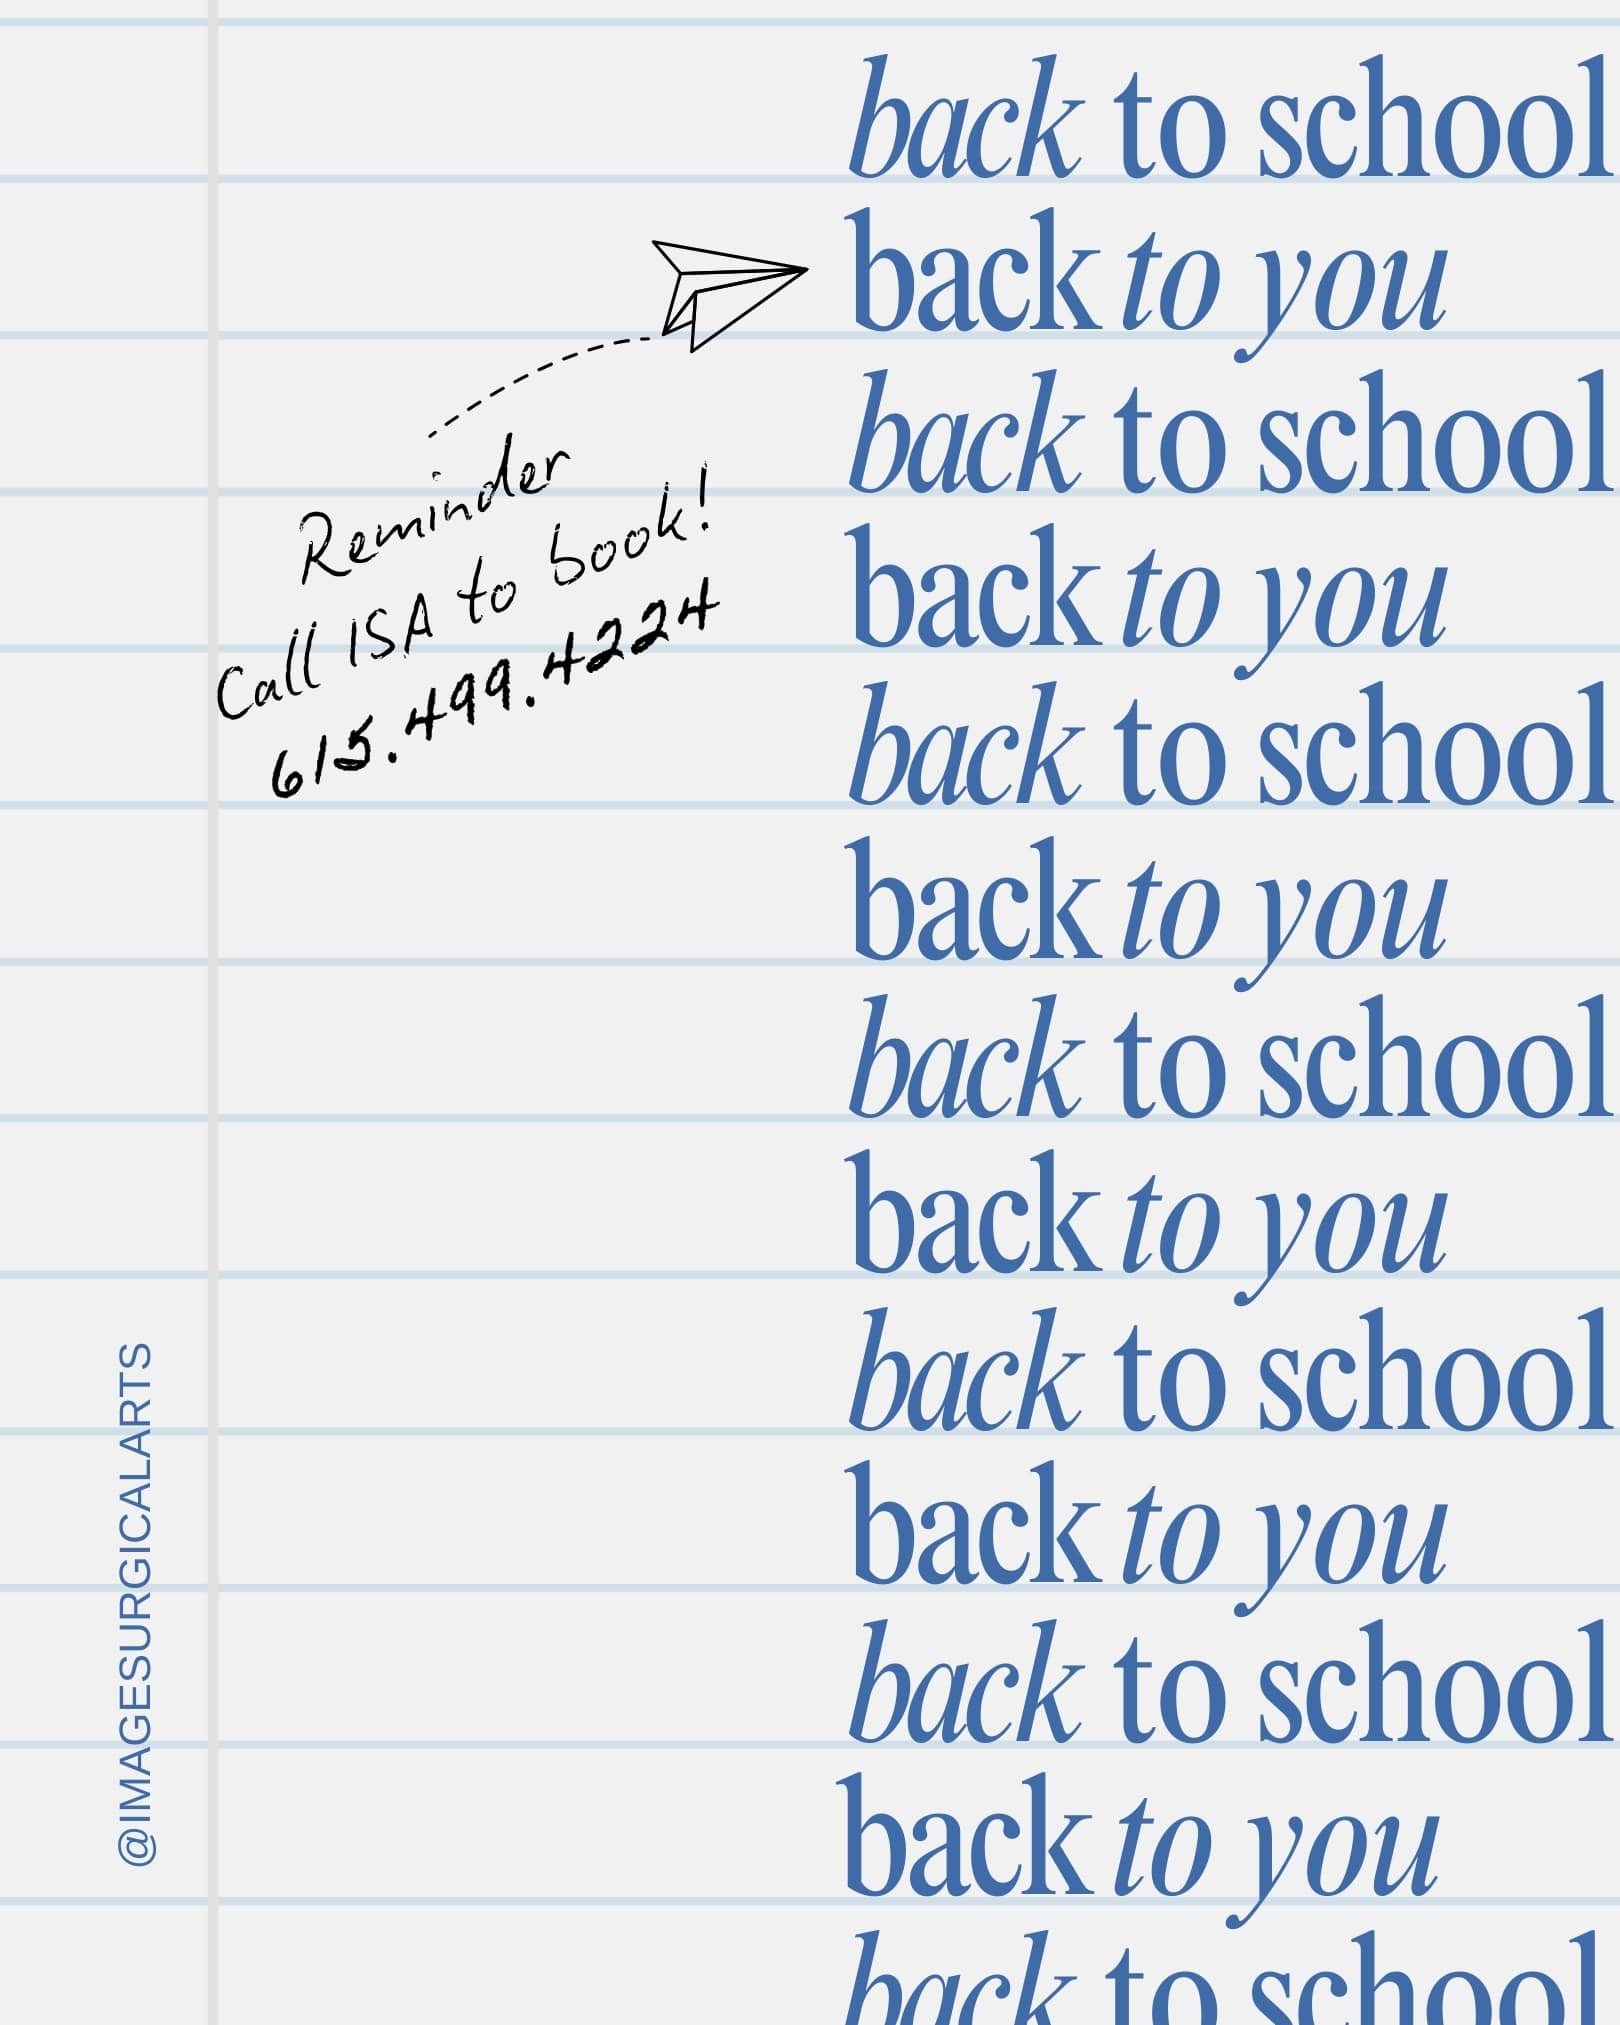 back to school
back to you
back to school
back to you
back to school
back to you
back to school
back to you
back to school
back to you
back to school
back to you
back to school
Reminder
Call ISA to book!
615.499.4224
@IMAGESURGICALARTS